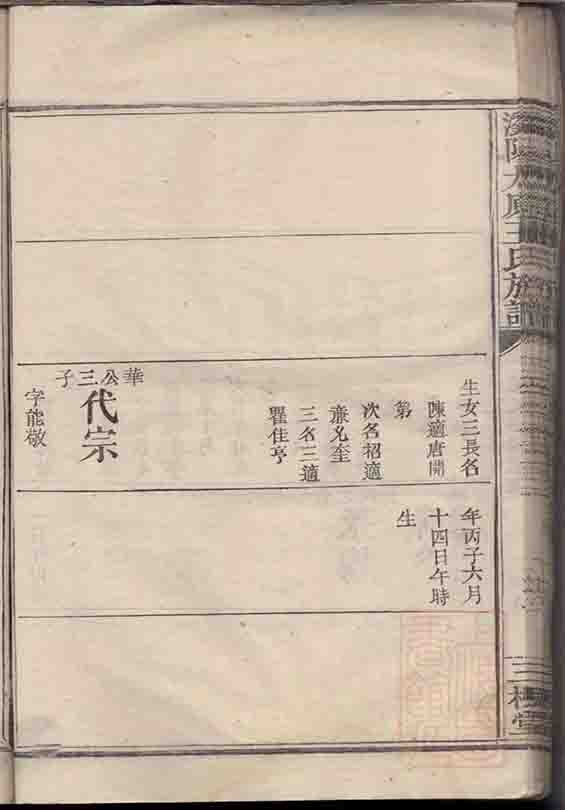 陽大廟王氏族譜
三槐堂
生女三長名
陳適唐開
第
次名招適
蕭兄奎
三名三適
瞿佳亨
華公三子
代宗
字能敬
年丙子六月
十四日午時
生